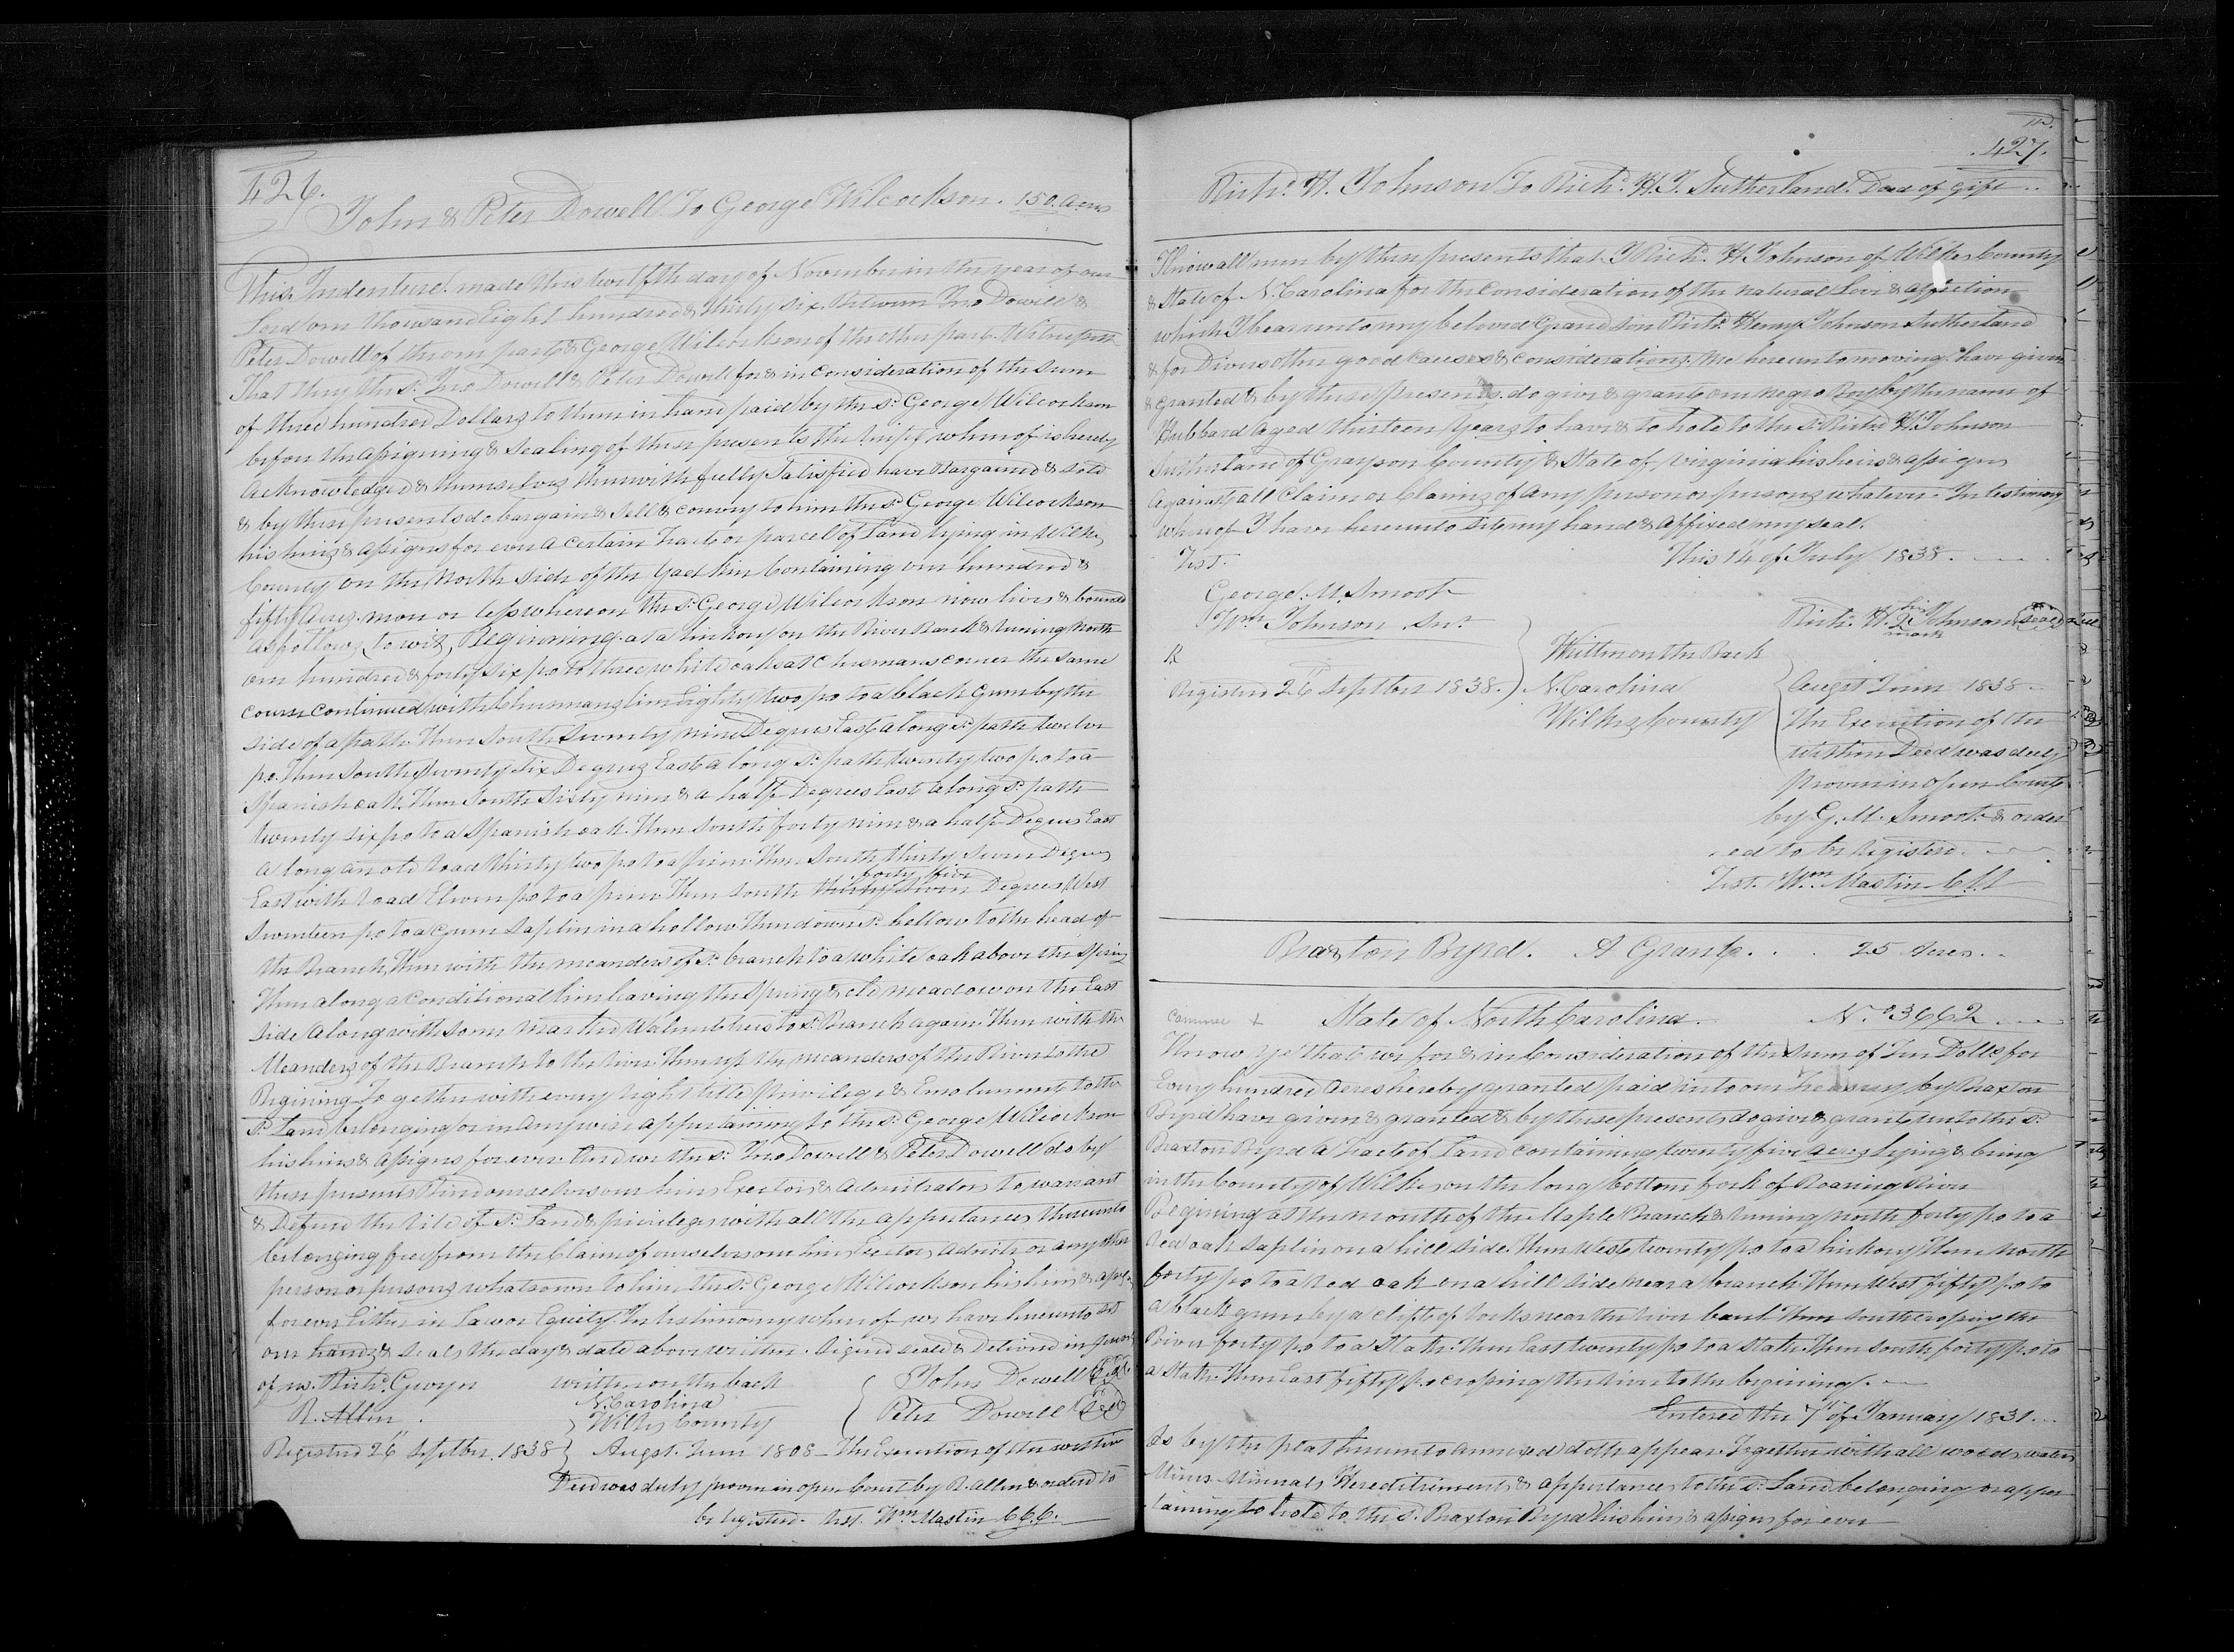 426.
John & Peter Dowell To George Wilcockson. 150. Acres
This Indenture made this twelfth day of November in the year of our
Lord one thousand Eight hundred & thirty six Between Jno Dowell &
Peter Dowell of the one part & George Wilcockson of the other part. Witnesseth
That they the sd. Jno Dowell & Peter Dowell for & in consideration of the sum
of three hundred Dollars to them in hand paid by the sd. George Wilcockson
before the assigning & sealing of these presents the receipt whereof is hereby
acknowledged & themselves therewith fully satisfied have Bargained & sold
& by these presents do bargain & sell & convey to him the sd. George Wilcockson
his heirs & assigns for ever a certain tract or parcell of Land lying in Wilkes
County on the North side of the Yadkin Containing one hundred &
fifty Acres more or less whereon the sd. George Wilcockson now lives & bounded
as follows, to wit, Begining at a hickory on the River Bank & runing North
one hundred & forty six po to three white oaks at Chismans corner the same
course continued with Chismans line Eighty two po to a black gum by the
side of a path. Then South Seventy nine Degrees East along sd. path twelve
po. Then South Seventy six Degrees East along sd. path twenty two po to a
Spanish oak. Then South Sixty nine & a half Degrees East along sd. path
twenty six po to a Spanish oak. Then South forty nine & a half Degrees East
along an old road thirty two po to a pine. Then South thirty Seven Degrees
East with road Eleven po to a pine Then South thirty seven forty five Degrees West
Seventeen po to a gum saplin in a hollow Then down sd. hollow to the head of
the Branch, Then with the meanders of sd. branch to a white oak above the spring
Then along a conditional line leaving the spring & old meadow on the East
side along with some marked Walnut trees to sd. Branch again. Then with the
Meanders of the Branch to the river Then up the meanders of the River to the
Begining Together with every right title priviledge & Emolument to the
sd. Land belonging or in any wise appertaining to the sd. George Wilcockson
his heirs & assigns for ever. And we the sd. Jno Dowell & Peter Dowell do by
these presents Bind ourselves our heirs Exectors & Admitrators to warrant
& Defend the title of sd. Land & privileges with all the appurtances thereunto
belonging free from the Claim of ourselves our heirs Exectors Admitr or any other
person or persons whatsoever to him the sd. George Wilcockson his heirs & assigns
for ever Either in Law or Equity. In testimony whereof we have hereunto set
our hands & seals the day & date above written. Signed sealed & Delivered in presence
of us. Richd. Gwyn written on the back John Dowell (Seal)
R. Allen. N. Carolina Peter Dowell (Seal)
Wilkes County
Registered 26th Septber. 1838 Augst. Term 1808 - The Execution of the within
Deed was duly proven in open Court by R. Allen & ordered to
be registered. Test. Wm Mastin C.C.C.
427.
Richd. H. Johnson To Richd. H. J. Sutherland. Deed of gift
Know all men by these presents that I Richd. H Johnson of Wilkes County
& State of N. Carolina for the consideration of the natural Love & affection
which I bear unto my beloved Grand son Richd. Henry Johnson Sutherland
& for Divers other good causes & considerations me hereunto moving have given
& granted & by these presents do give & grant one negro Boy by the name of
Hubbard aged thirteen years to have & to hold to the sd. Richd H. Johnson
Sutherland of Grayson County & State of Virginia his heirs & assigns
against all Claim or Claims of any person or persons whatever. In testimony
whereof I have hereunto set my hand & affixed my seal.
Test. This 14th of July 1838.
George. M. Smoot
Wm Johnson Snr. Richd. H. his mark Johnson (Seal)
R
Written on the Back
Registered 26th Septber 1838. N. Carolina Augst Term 1838
Wilkes County The Execution of the
within Deed was duly
proven in open Court
by G. M. Smoot & order
ed to be registered.
Test. Wm Mastin Clk
Braxton Byrd. A Grant. 25 Acres
State of North Carolina. No. 3662
Know ye that we for & in Consideration of the sum of Ten Dolls for
Every hundred acres hereby granted paid into our Treasury by Braxton
Byrd have given & granted & by these presents do give & grant unto the sd.
Braxton Byrd a Tract of Land containing twenty five acres lying & being
in the County of Wilkes on the long bottom fork of Roaring River
Begining at the mouth of the Maple Branch & runing North forty po to a
red oak saplin on a hill side. Then West twenty po to a hickory Then North
forty po to a red oak on a hill side near a branch. Then West fifty po to
a black gum by a clift of rocks near the river bank Then South crossing the
River forty po to a stake. Then East twenty po to a stake. Then South forty po to
a stake. Then East fifty po crossing the river to the begining.
Entered the 7th of January 1831.
As by the plat hereunto annexed doth appear. Together with all woods, waters
Mines Minerals Hereditiments & appurtances to the sd. Land belonging or apper
taining to hold to the sd. Braxton Byrd his heirs & assigns for ever